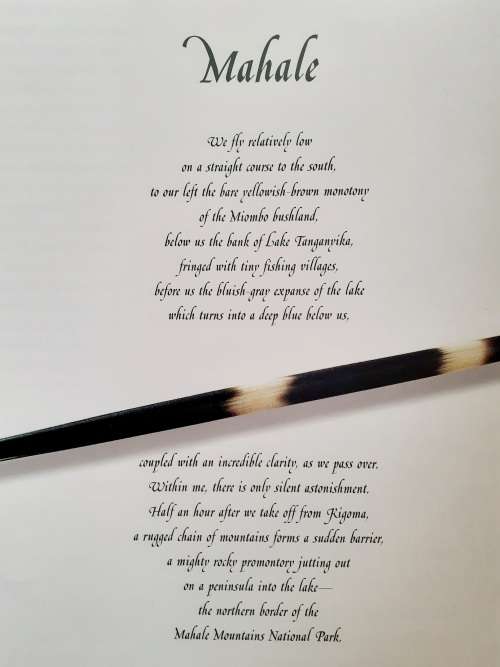 Mahale
We fly relatively low
on a straight course to the south,
to our left the bare yellowish-brown monotony
of the Miombo bushland,
below us the bank of Lake Tanganyika,
fringed with tiny fishing villages,
before us the bluish-gray expanse of the lake
which turns into a deep blue below us,
coupled with an incredible clarity, as we pass over.
Within me, there is only silent astonishment.
Half an hour after we take off from Kigoma,
a rugged chain of mountains forms a sudden barrier,
a mighty rocky promontory jutting out
on a peninsula into the lake—
the northern border of the
Mahale Mountains National Park.